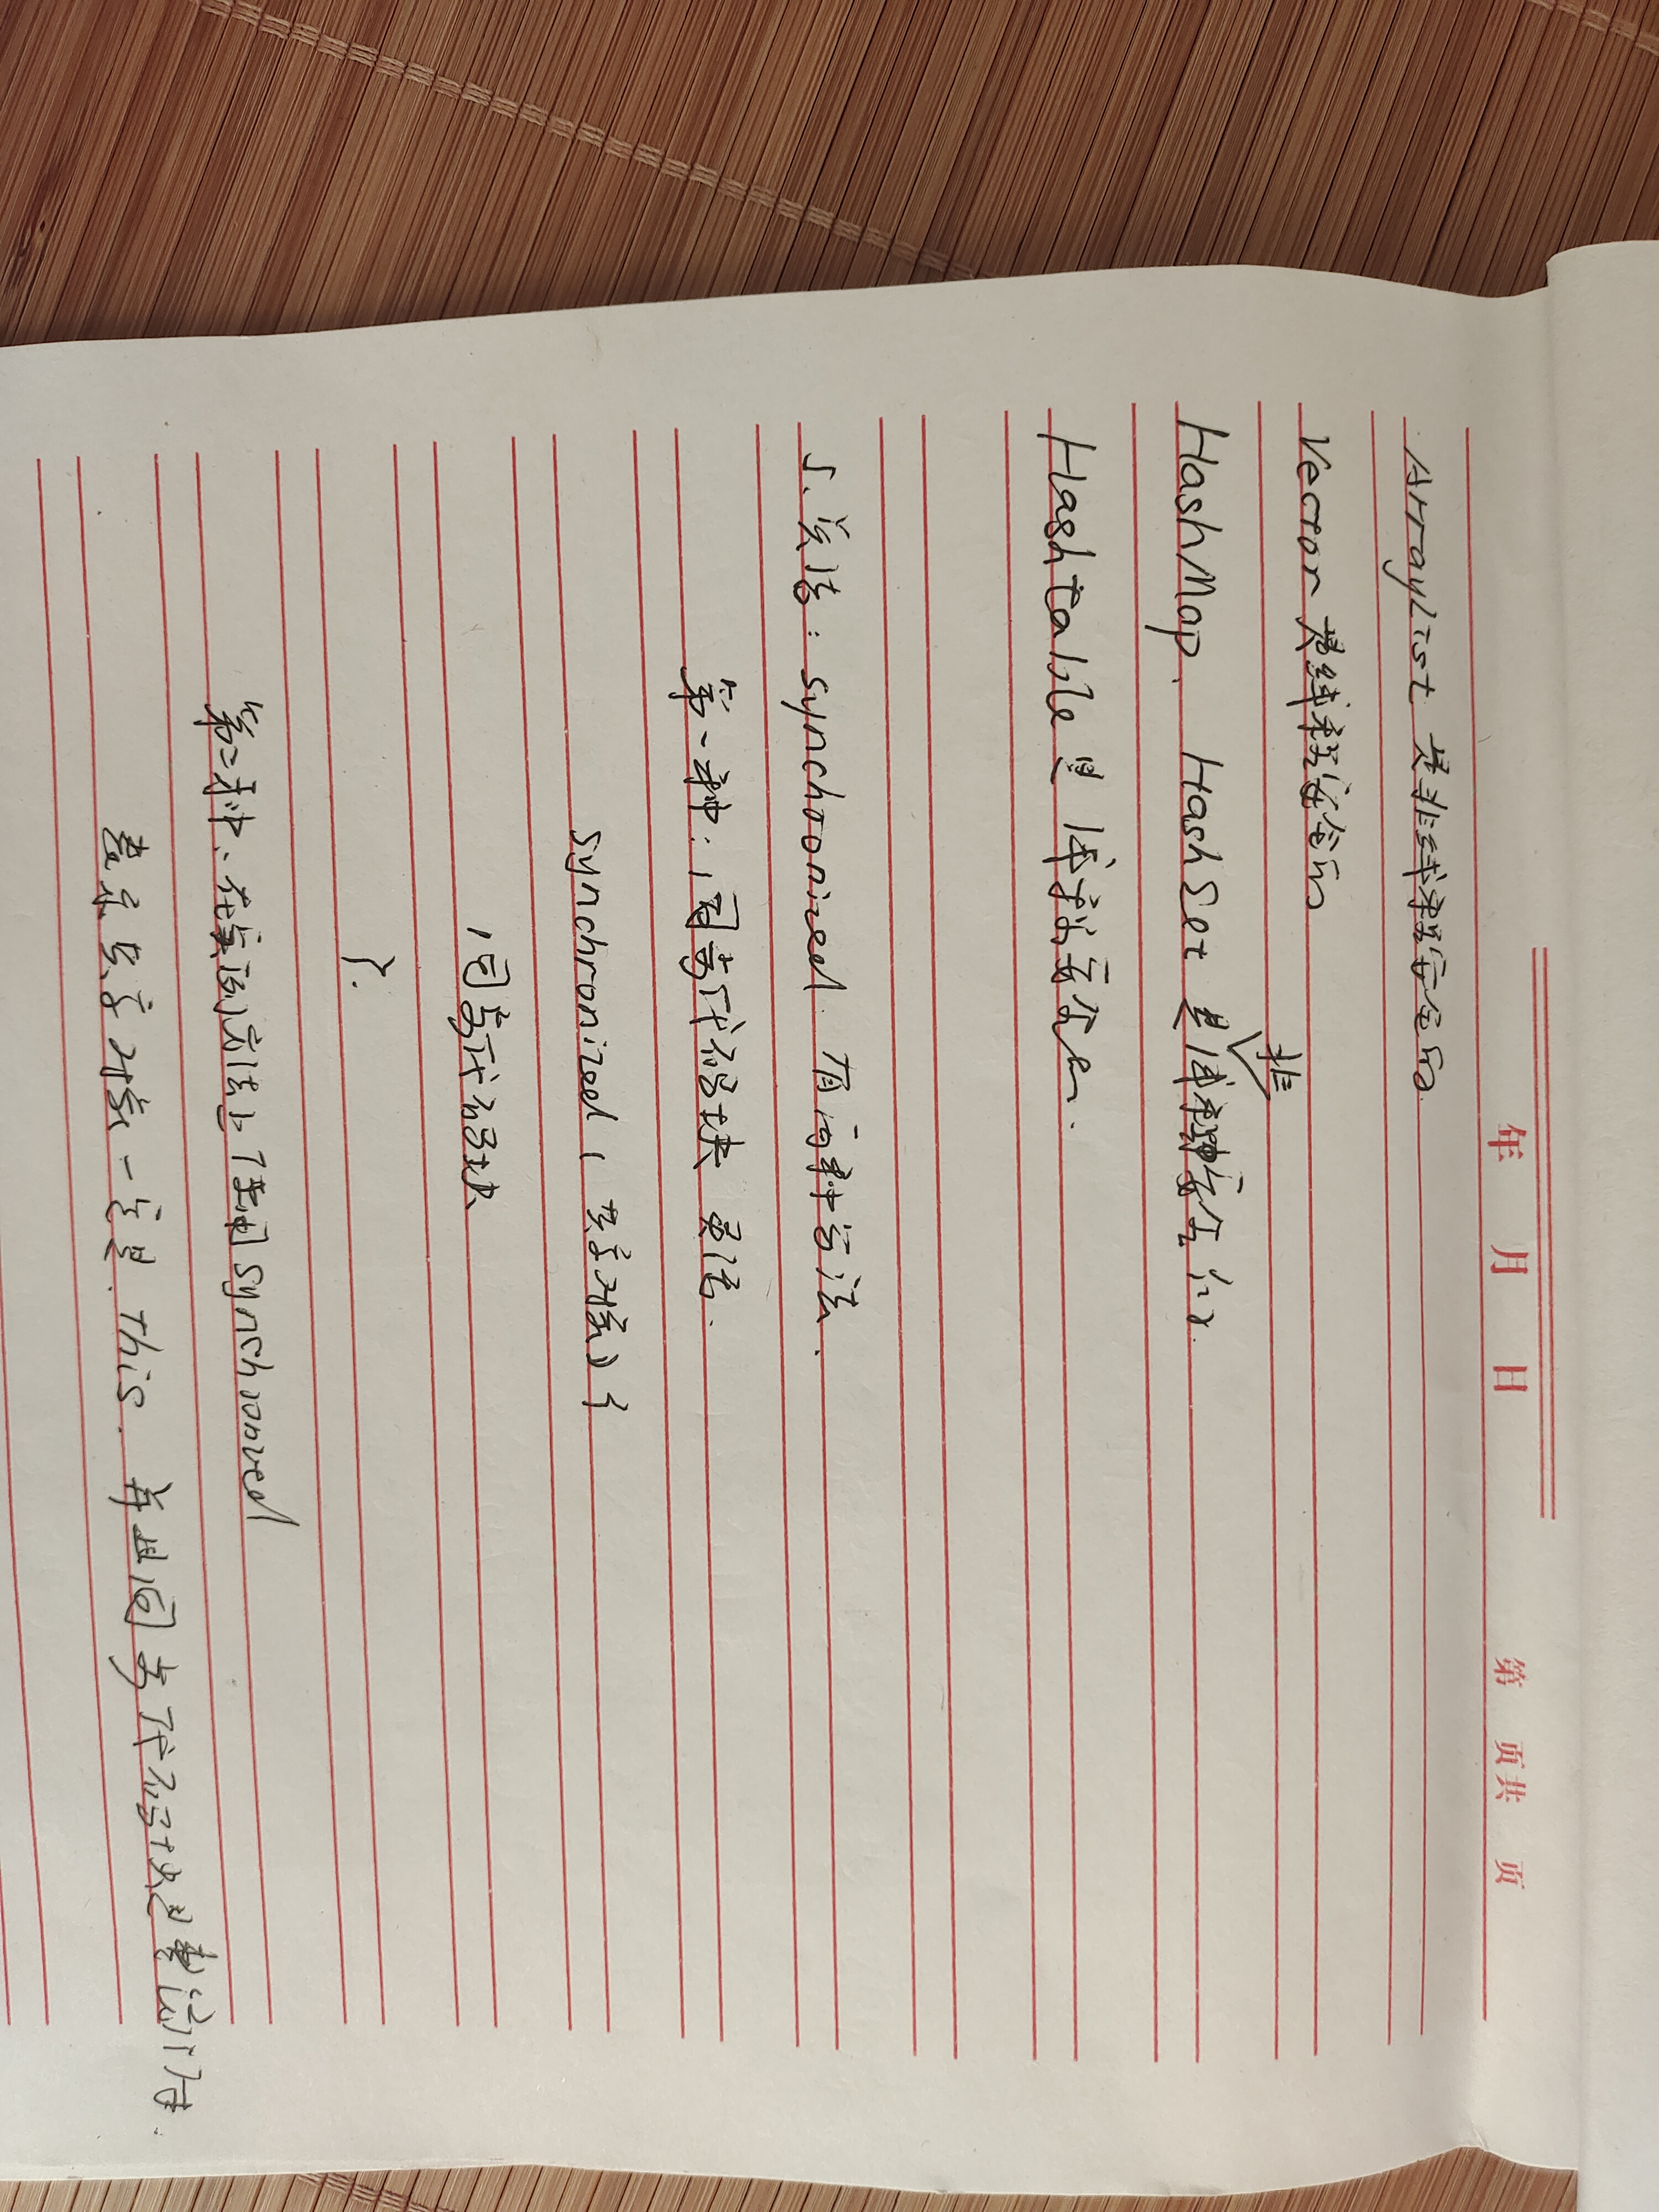 年 月 日 第 页 共 页
ArrayList 是非线程安全的.
Vector 是线程安全的
HashMap. HashSet 是非线程安全的.
Hashtable 是 线程安全.
5. 关法: synchronized 有两种方法.
第一种: 同步代码块 灵活.
synchronized ( 共享对象 ) {
同步代码块
}.
第二种、在实例方法上使用 synchronized
表示共享对象一定是. this. 并且同步代码块是整个方法体.